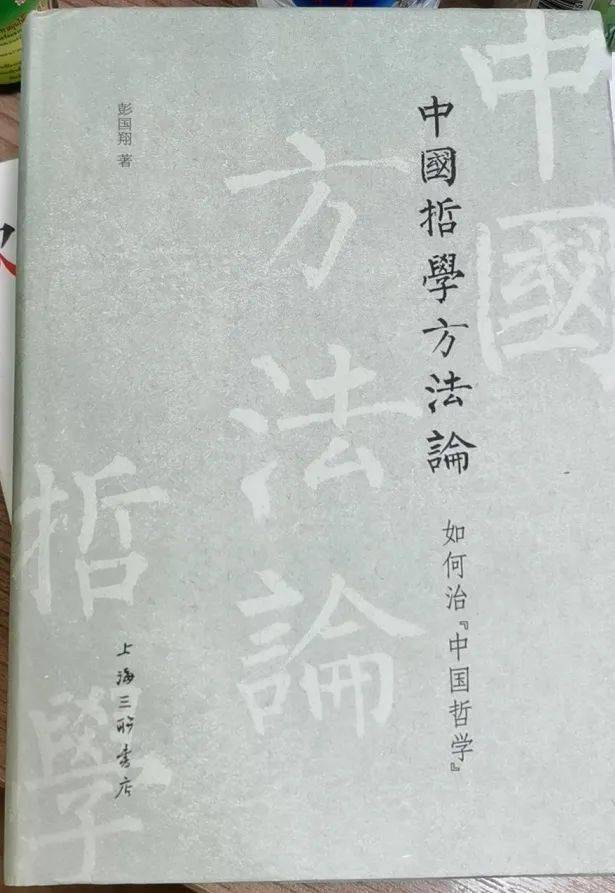 中國哲學方法論
如何治『中国哲学』
彭国翔 著
上海三联书店
中國
方法論
哲學